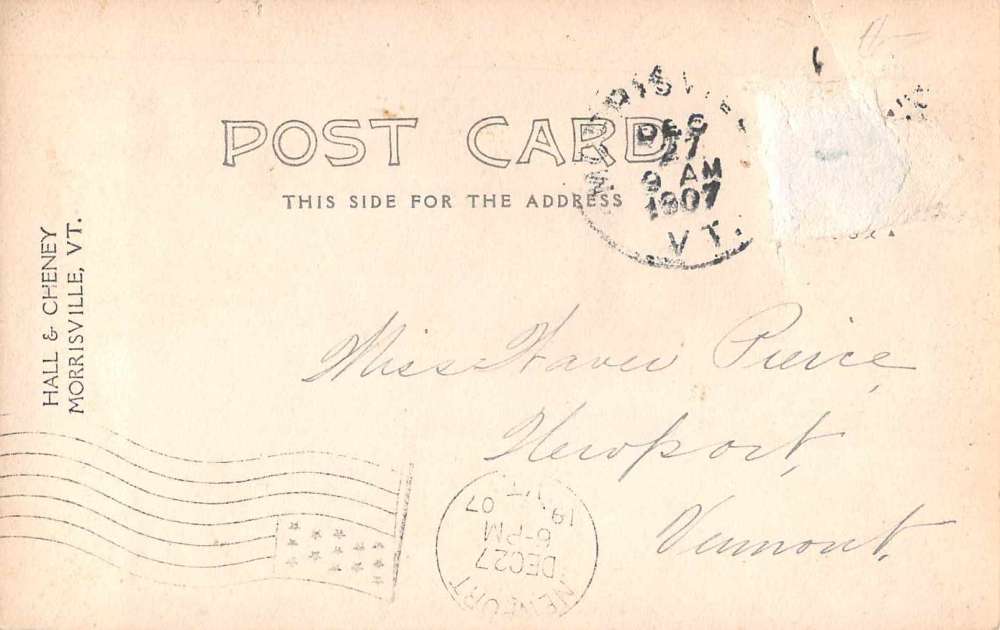 POST CARD
THIS SIDE FOR THE ADDRESS
MORRISVILLE
DEC
27
9 AM
1907
VT.
HALL & CHENEY
MORRISVILLE, VT.
Miss Pierce,
Newport,
Vermont.
NEWPORT
DEC 27
6-PM
VT.
1907